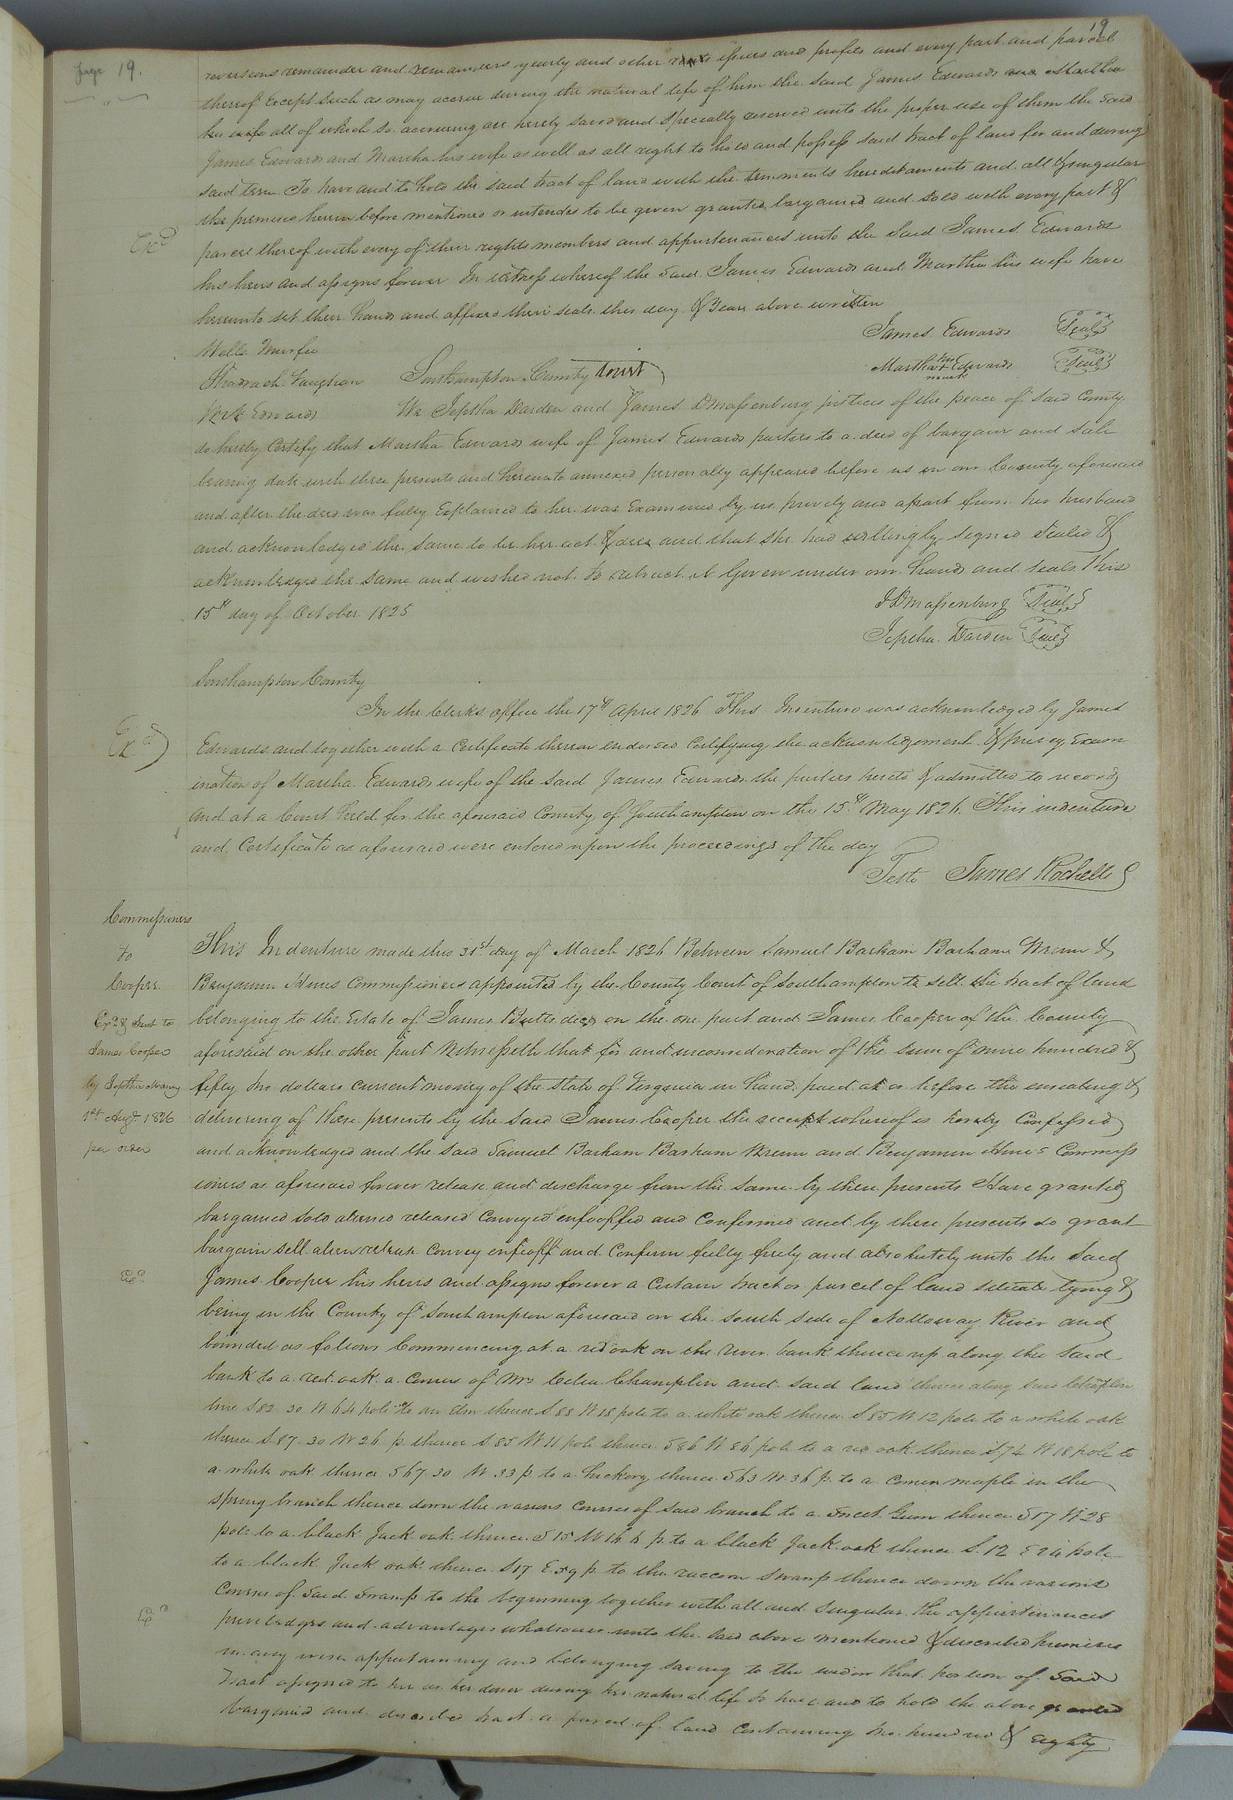 19
page 19.
reversions remainder and remainders yearly and other rents issues and profits and every part and parcel
thereof Except such as may accrue during the natural life of him the said James Edwards and Martha
his wife all of which so accruing are hereby saved and specially reserved unto the proper use of them the said
James Edwards and Martha his wife as well as all right to hold and possess said tract of land for and during
said term To have and to hold the said tract of land with the tenements hereditaments and all & singular
the premises herein before mentioned or intended to be given granted bargained and sold with every part &
Exd
parcel thereof with every of their rights members and appurtenances unto the said James Edwards
his heirs and assigns forever In witness whereof the said James Edwards and Martha his wife have
hereunto set their hands and affixed their seals this day & Year above written
James Edwards Seal
Wells Murfee
Martha her + mark Edwards Seal
Shadrach Vaughan Southampton County Court
Edwards We Jeptha Darden and James D Massenburg justices of the peace of said County
do hereby Certify that Martha Edwards wife of James Edwards parties to a deed of bargain and sale
bearing date with these presents and hereunto annexed personally appeared before us in our County aforesaid
and after the deed was fully Explained to her was Examined by us privily and apart from her husband
and acknowledged the same to be her act & deed and that she had willingly signed sealed &
acknowledged the same and wished not to retract it Given under our hands and seals This
15th day of October 1825
J D Massenburg Seal
Jeptha Darden Seal
Southampton County
In the Clerks office the 17th April 1826 This Indenture was acknowledged by James
Exd
Edwards and together with a Certificate thereon endorsed Certifying the acknowledgement & privy Exam
ination of Martha Edwards wife of the said James Edwards the parties hereto & admitted to record
and at a Court held for the aforesaid County of Southampton on the 15th May 1826 This indenture
and Certificate as aforesaid were entered upon the proceedings of the day
Teste James Rochelle
Commissioners
to
Cooper
Exd & sent to
James Cooper
by Jeptha
1st Augt 1826
per order
This Indenture made this 31st day of March 1826 Between Samuel Barham Barham Wrenn &
Benjamin Hines Commissioners appointed by the County Court of Southampton to sell the tract of land
belonging to the Estate of James Butts decd on the one part and James Cooper of the County
aforesaid on the other part Witnesseth that for and in consideration of the sum of nine hundred &
fifty two dollars current money of the state of Virginia in hand paid at or before the ensealing &
delivering of these presents by the said James Cooper the receipt whereof is hereby Confessed
and acknowledged and the said Samuel Barham Barham Wrenn and Benjamin Hines Commiss
ioners as aforesaid forever release and discharge from the same by these presents Have granted
bargained sold aliened released Conveyed enfeoffed and Confirmed and by these presents do grant
bargain sell alien release Convey enfeoff and Confirm fully freely and absolutely unto the said
Exd
James Cooper his heirs and assigns forever a Certain tract or parcel of land situate lying &
being in the County of Southampton aforesaid on the south side of Nottoway River and
bounded as follows Commencing at a red oak on the river bank thence up along the said
bank to a red oak a Corner of Mrs Celia Champlin and said land thence along said
line S 82 30 W 64 pole to an Elm thence S 88 W 18 pole to a white oak thence S 85 W 12 pole to a white oak
thence S 87. 30 W 26 p. thence S 85 W 11 pole thence S 86 W 86 pole to a red oak thence S 74 W 18 pole to
a white oak thence S 67. 30 W 33 p to a hickory thence S 63 W. 36 p. to a Corner maple in the
spring branch thence down the various Courses of said branch to a sweet Gum thence S 17 W 28
pole to a black Jack oak thence S 15 W 16 p. to a black Jack oak thence S. 12 E 24 pole
to a black Jack oak thence S 17 E 59 p to the raccoon swamp thence down the various
Exd
Courses of said swamp to the beginning together with all and singular the appurtenances
priviledges and advantages whatsoever unto the said above mentioned & described premises
in any wise appertaining and belonging saving to the widow that portion of said
Tract assigned to her as her dower during her natural life to have and to hold the above granted
bargained and described tract or parcel of land Containing two hundred & Eighty